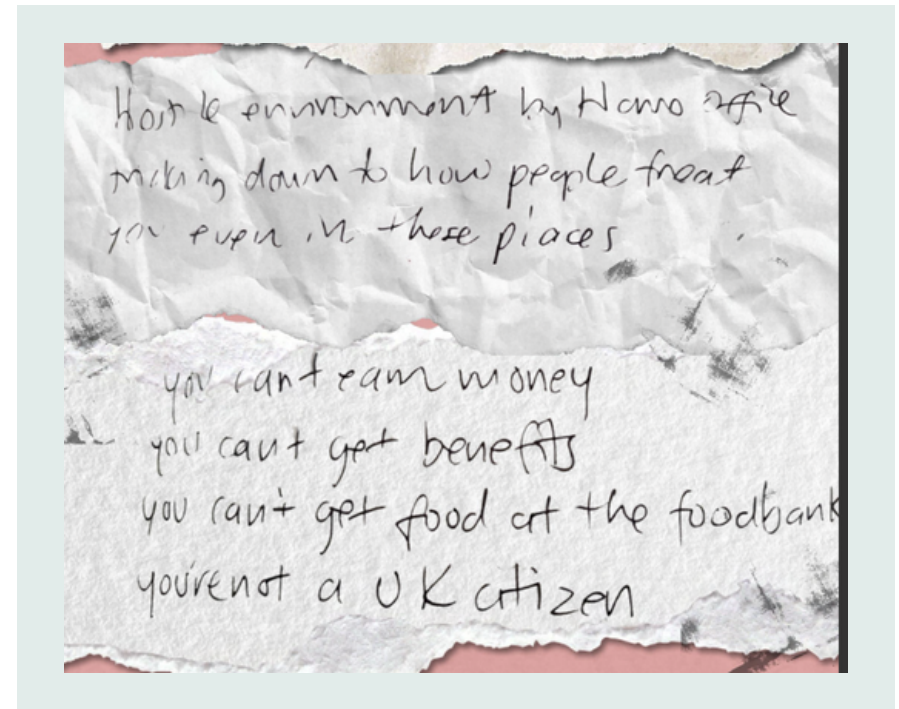 Hostile environment by Home office
making down to how people treat
you even in these places
you can't earn money
you can't get benefits
you can't get food at the foodbank
you're not a UK citizen